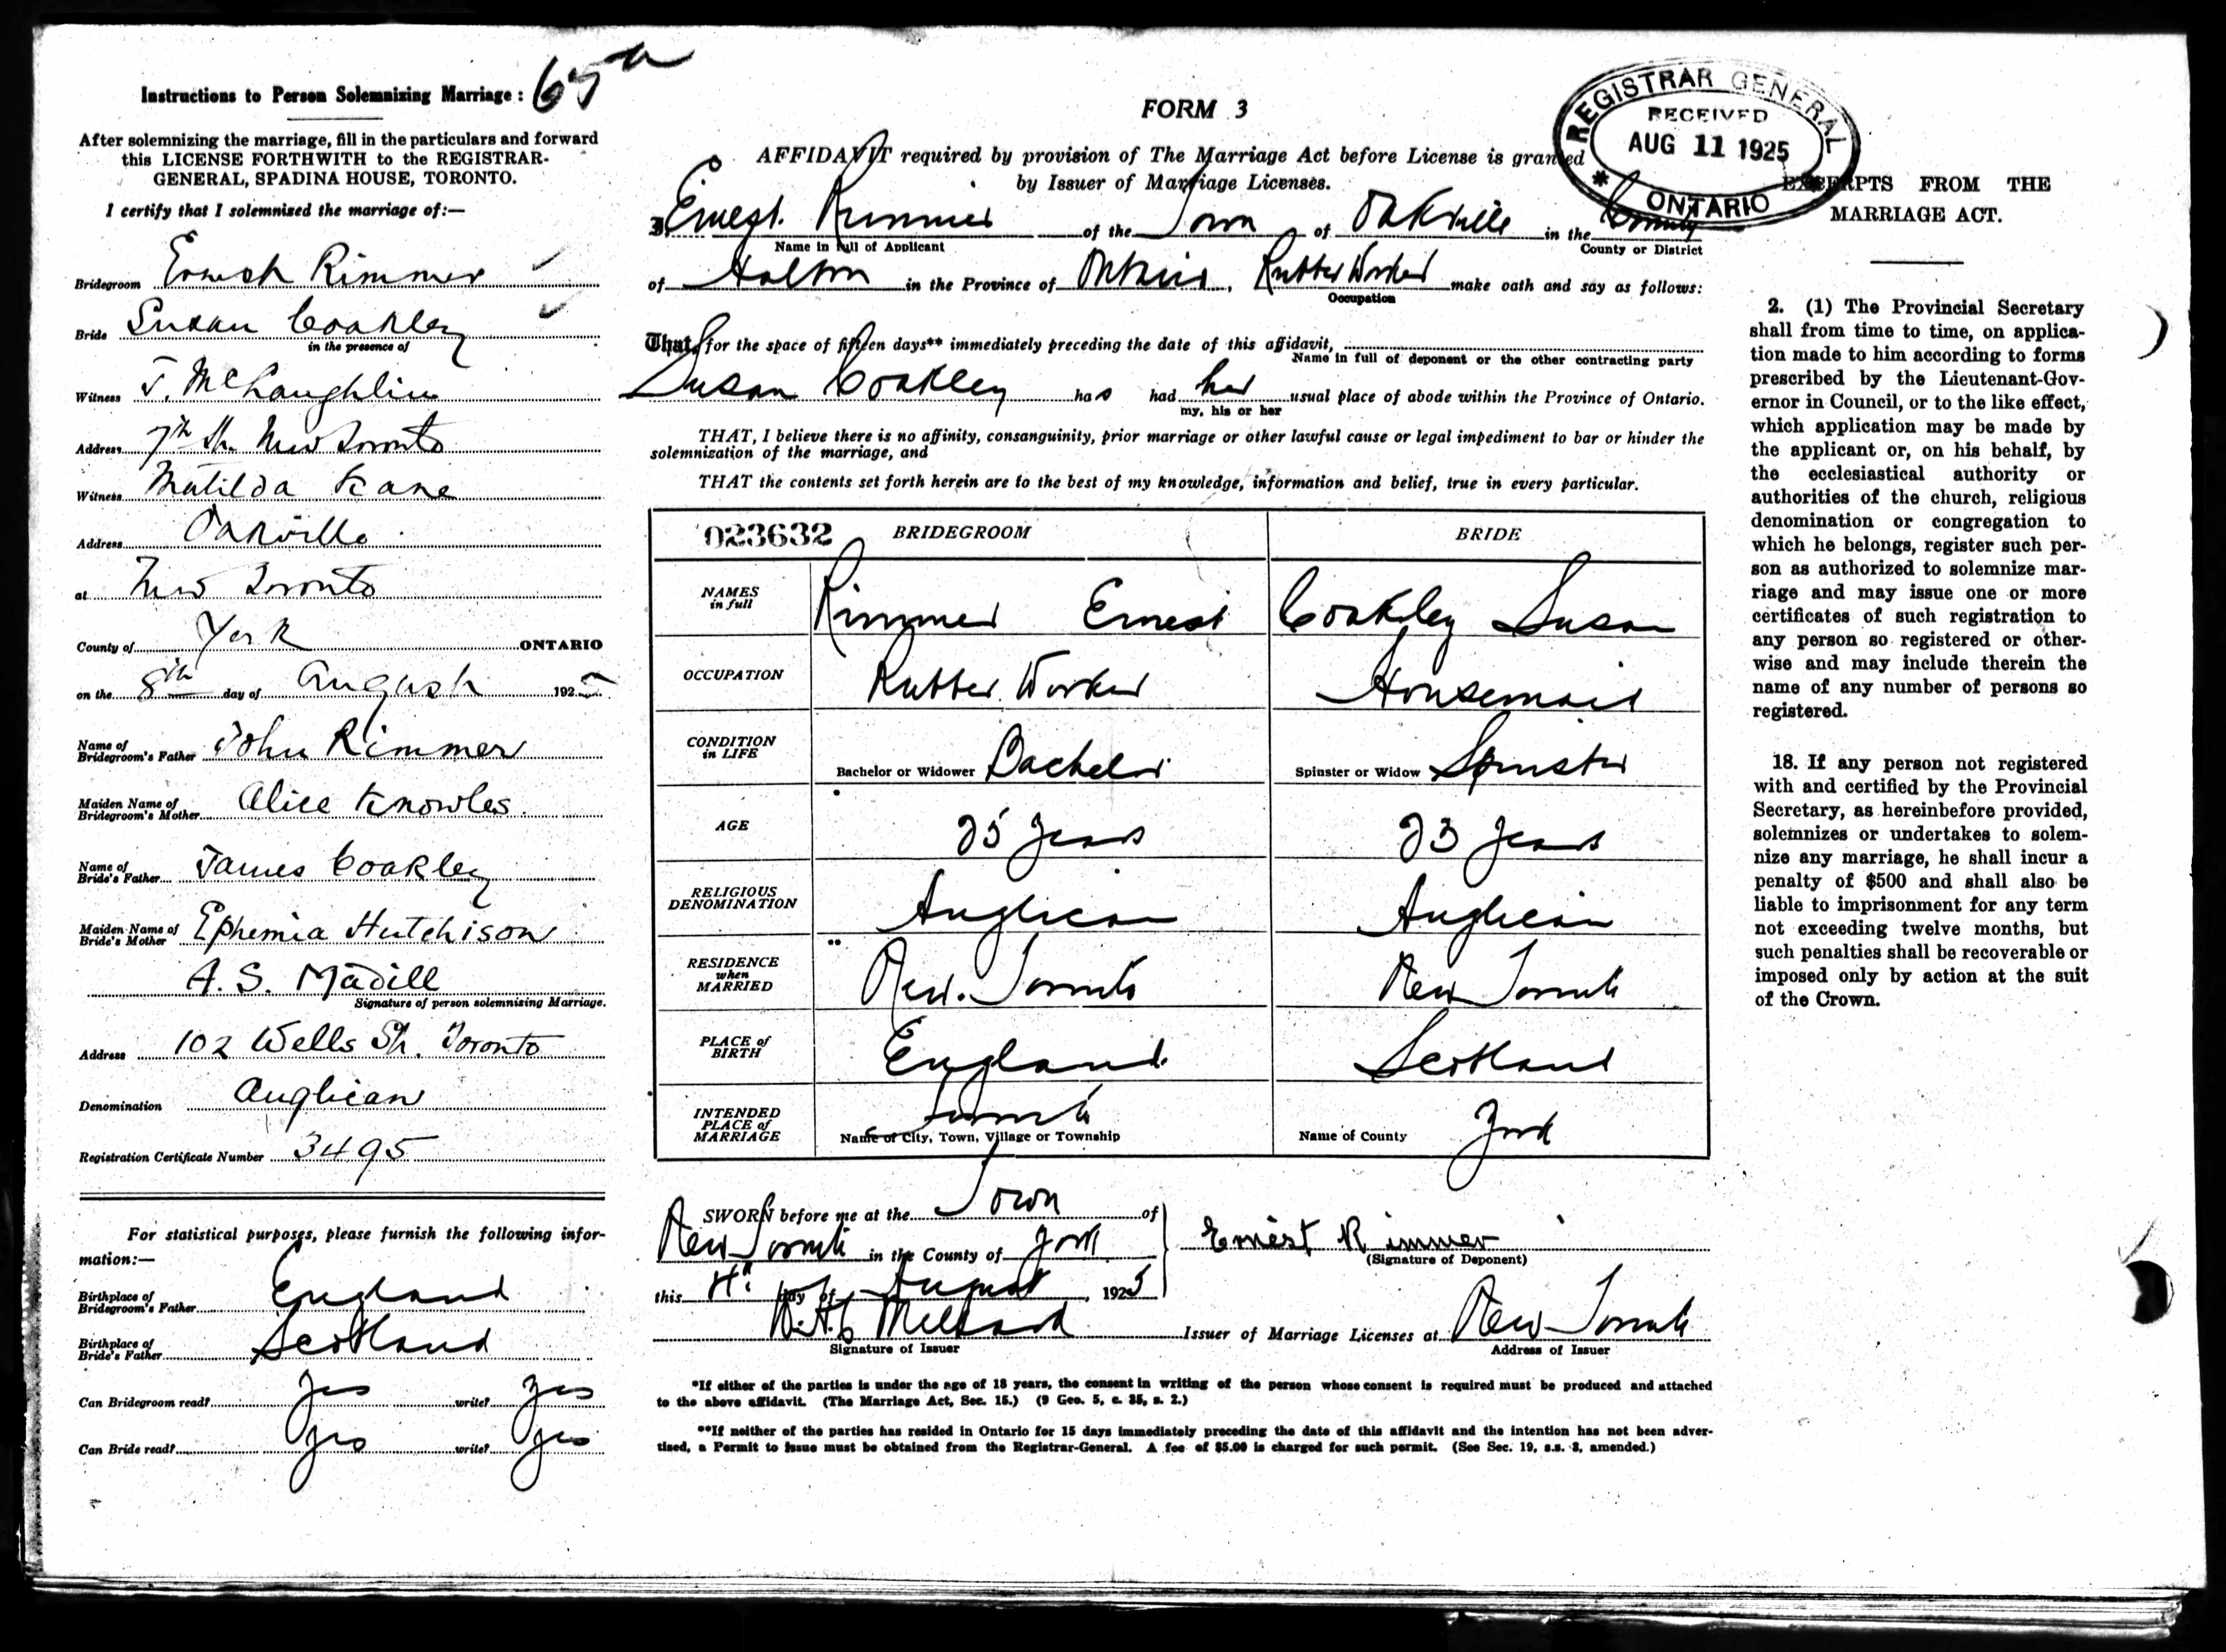 Instructions to Person Solemnizing Marriage:
After solemnizing the marriage, fill in the particulars and forward
this LICENSE FORTHWITH to the REGISTRAR-
GENERAL, SPADINA HOUSE, TORONTO.
I certify that I solemnized the marriage of:—
Bridegroom Ernest Rimmer
Bride Susan Coakley
in the presence of
Witness J. McLaughlin
Address 7th St. New Toronto
Witness Matilda Kane
Address Oakville
at New Toronto
County of York ONTARIO
on the 8th day of August 1925
Name of
Bridegroom's Father John Rimmer
Maiden Name of
Bridegroom's Mother Alice Knowles
Name of
Bride's Father James Coakley
Maiden Name of
Bride's Mother Ephemia Hutchison
A. S. Madill
Signature of person solemnizing Marriage.
Address 102 Wells St. Toronto
Denomination Anglican
Registration Certificate Number 3495
For statistical purposes, please furnish the following infor-
mation:—
Birthplace of
Bridegroom's Father England
Birthplace of
Bride's Father Scotland
Can Bridegroom read? Yes write? Yes
Can Bride read? Yes write? Yes
FORM 3
AFFIDAVIT required by provision of The Marriage Act before License is granted
by Issuer of Marriage Licenses.
I, Ernest Rimmer of the Town of Oakville in the County
Name in full of Applicant County or District
of Halton in the Province of Ontario, Rubber Worker make oath and say as follows:
Occupation
That, for the space of fifteen days** immediately preceding the date of this affidavit,
Name in full of deponent or the other contracting party
Susan Coakley has had her usual place of abode within the Province of Ontario.
my, his or her
THAT, I believe there is no affinity, consanguinity, prior marriage or other lawful cause or legal impediment to bar or hinder the
solemnization of the marriage, and
THAT the contents set forth herein are to the best of my knowledge, information and belief, true in every particular.
023632 BRIDEGROOM BRIDE
NAMES
in full Rimmer Ernest Coakley Susan
OCCUPATION Rubber Worker Housemaid
CONDITION
in LIFE Bachelor or Widower Bachelor Spinster or Widow Spinster
AGE 25 Years 23 Years
RELIGIOUS
DENOMINATION Anglican Anglican
RESIDENCE
when
MARRIED New Toronto New Toronto
PLACE of
BIRTH England Scotland
INTENDED
PLACE of
MARRIAGE Toronto York
Name of City, Town, Village or Township Name of County
SWORN before me at the Town of
New Toronto in the County of York
this 4th day of August, 1925
Ernest Rimmer
(Signature of Deponent)
Signature of Issuer
Issuer of Marriage Licenses at New Toronto
Address of Issuer
*If either of the parties is under the age of 18 years, the consent in writing of the person whose consent is required must be produced and attached
to the above affidavit. (The Marriage Act, Sec. 15.) (9 Geo. 5, c. 35, s. 2.)
**If neither of the parties has resided in Ontario for 15 days immediately preceding the date of this affidavit and the intention has not been adver-
tised, a Permit to Issue must be obtained from the Registrar-General. A fee of $5.00 is charged for such permit. (See Sec. 19, s.s. 3, amended.)
REGISTRAR GENERAL
RECEIVED
AUG 11 1925
ONTARIO
EXCERPTS FROM THE
MARRIAGE ACT.
2. (1) The Provincial Secretary
shall from time to time, on applica-
tion made to him according to forms
prescribed by the Lieutenant-Gov-
ernor in Council, or to the like effect,
which application may be made by
the applicant or, on his behalf, by
the ecclesiastical authority or
authorities of the church, religious
denomination or congregation to
which he belongs, register such per-
son as authorized to solemnize mar-
riage and may issue one or more
certificates of such registration to
any person so registered or other-
wise and may include therein the
name of any number of persons so
registered.
18. If any person not registered
with and certified by the Provincial
Secretary, as hereinbefore provided,
solemnizes or undertakes to solem-
nize any marriage, he shall incur a
penalty of $500 and shall also be
liable to imprisonment for any term
not exceeding twelve months, but
such penalties shall be recoverable or
imposed only by action at the suit
of the Crown.